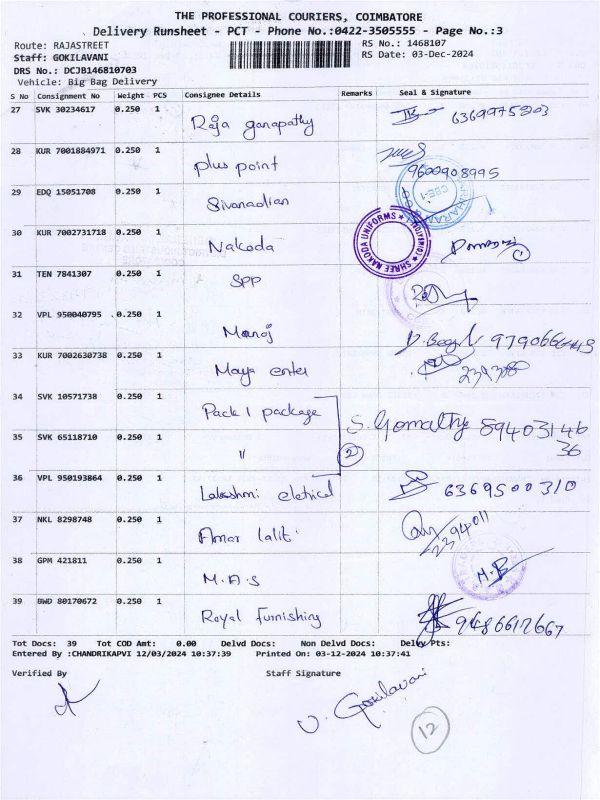 THE PROFESSIONAL COURIERS, COIMBATORE
Delivery Runsheet - PCT - Phone No.:0422-3505555 - Page No.:3
Route: RAJASTREET RS No.: 1468107
Staff: GOKILAVANI RS Date: 03-Dec-2024
DRS No.: DCJB146810703
Vehicle: Big Bag Delivery
S No Consignment No Weight PCS Consignee Details Remarks Seal & Signature
27 SVK 30234617 0.250 1 Raja ganapathy
28 KUR 7001884971 0.250 1 plus point 9600908995
29 EDQ 15051708 0.250 1 CBE-1
SHREE NAKODA UNIFORMS
30 KUR 7002731718 0.250 1 Nakoda
31 TEN 7841307 0.250 1 SPP
32 VPL 950040795 0.250 1 Manoj
33 KUR 7002630738 0.250 1 Maya enter
34 SVK 10571738 0.250 1 Pack 1 package S. Gomathy 89403146
35 SVK 65118710 0.250 1 " 2 36
36 VPL 950193864 0.250 1 Lakshmi eletrical 6369500310
37 NKL 8298748 0.250 1 Amar lalit 2394011
38 GPM 421811 0.250 1 M.A.S M.B
39 BWD 80170672 0.250 1 Royal Furnishing 9486612667
Tot Docs: 39 Tot COD Amt: 0.00 Delvd Docs: Non Delvd Docs: Delvy Pts:
Entered By :CHANDRIKAPVI 12/03/2024 10:37:39 Printed On: 03-12-2024 10:37:41
Verified By Staff Signature
V. Gokilavani
12